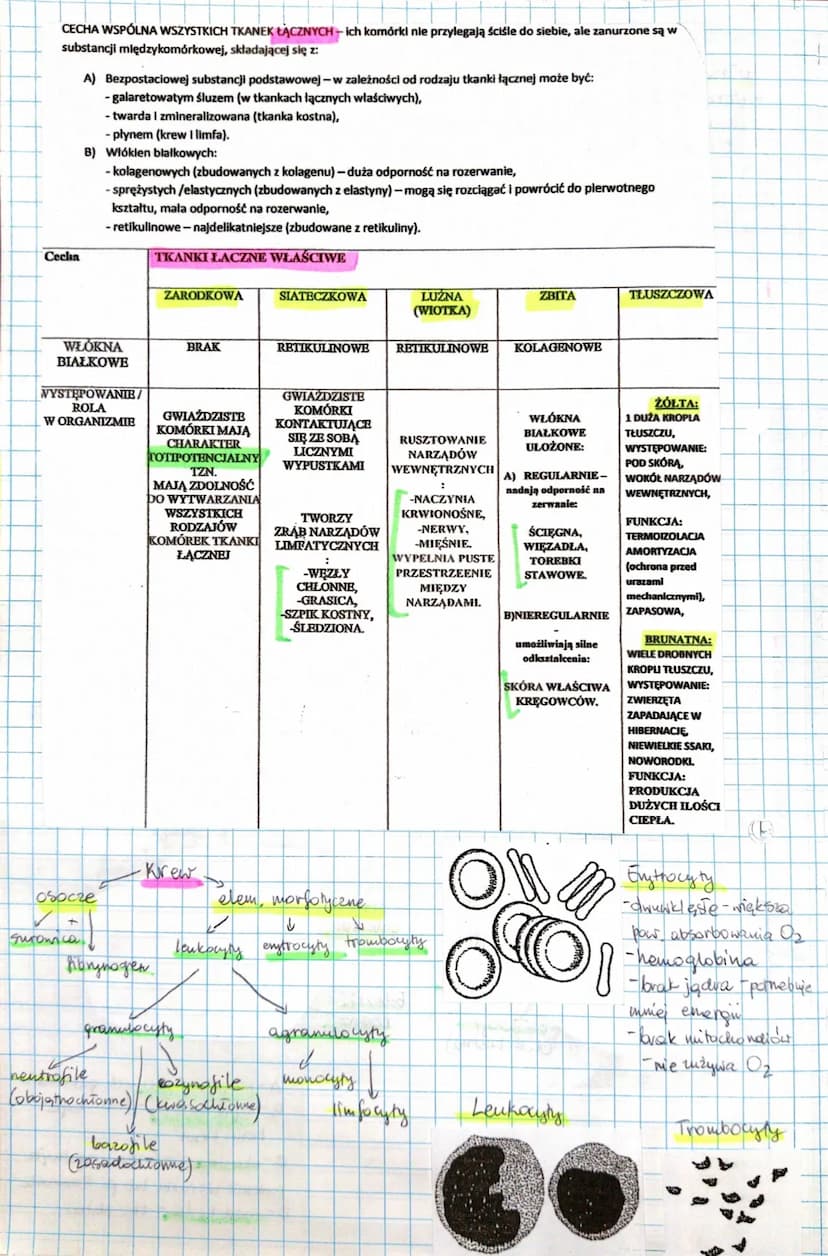 CECHA WSPÓLNA WSZYSTKICH TKANEK ŁĄCZNYCH – ich komórki nie przylegają ściśle do siebie, ale zanurzone są w
substancji międzykomórkowej, składającej się z:
A) Bezpostaciowej substancji podstawowej – w zależności od rodzaju tkanki łącznej może być:
- galaretowatym śluzem (w tkankach łącznych właściwych),
- twarda i zmineralizowana (tkanka kostna),
- płynem (krew i limfa).
B) Włókien białkowych:
- kolagenowych (zbudowanych z kolagenu) – duża odporność na rozerwanie,
- sprężystych /elastycznych (zbudowanych z elastyny) – mogą się rozciągać i powrócić do pierwotnego
kształtu, mała odporność na rozerwanie,
- retikulinowe – najdelikatniejsze (zbudowane z retikuliny).
Cecha
TKANKI ŁACZNE WŁAŚCIWE
ZARODKOWA
SIATECZKOWA
LUŹNA
(WIOTKA)
ZBITA
TŁUSZCZOWA
WŁÓKNA
BIAŁKOWE
BRAK
RETIKULINOWE
RETIKULINOWE
KOLAGENOWE
WYSTĘPOWANIE/
ROLA
W ORGANIZMIE
GWIAŹDZISTE
KOMÓRKI MAJĄ
CHARAKTER
TOTIPOTENCJALNY
TZN.
MAJĄ ZDOLNOŚĆ
DO WYTWARZANIA
WSZYSTKICH
RODZAJÓW
KOMÓREK TKANKI
ŁĄCZNEJ
GWIAŹDZISTE
KOMÓRKI
KONTAKTUJĄCE
SIĘ ZE SOBĄ
LICZNYMI
WYPUSTKAMI
TWORZY
ZRĄB NARZĄDÓW
LIMFATYCZNYCH
:
-WĘZŁY
CHŁONNE,
-GRASICA,
-SZPIK KOSTNY,
-ŚLEDZIONA.
RUSZTOWANIE
NARZĄDÓW
WEWNĘTRZNYCH
:
-NACZYNIA
KRWIONOŚNE,
-NERWY,
-MIĘŚNIE.
WYPEŁNIA PUSTE
PRZESTRZEENIE
MIĘDZY
NARZĄDAMI.
WŁÓKNA
BIAŁKOWE
UŁOŻONE:
A) REGULARNIE –
nadają odporność na
zerwanie:
ŚCIĘGNA,
WIĘZADŁA,
TOREBKI
STAWOWE.
B)NIEREGULARNIE
-
umożliwiają silne
odkształcenia:
SKÓRA WŁAŚCIWA
KRĘGOWCÓW.
ŻÓŁTA:
1 DUŻA KROPLA
TŁUSZCZU,
WYSTĘPOWANIE:
POD SKÓRĄ,
WOKÓŁ NARZĄDÓW
WEWNĘTRZNYCH,
FUNKCJA:
TERMOIZOLACJA
AMORTYZACJA
(ochrona przed
urazami
mechanicznymi),
ZAPASOWA,
BRUNATNA:
WIELE DROBNYCH
KROPLI TŁUSZCZU,
WYSTĘPOWANIE:
ZWIERZĘTA
ZAPADAJĄCE W
HIBERNACJĘ,
NIEWIELKIE SSAKI,
NOWORODKI.
FUNKCJA:
PRODUKCJA
DUŻYCH ILOŚCI
CIEPŁA.
Krew
osocze
elem. morfotyczne
surowica
+
fibrynogen
leukocyty
erytrocyty
trombocyty
granulocyty
agranulocyty
neutrofile
(obojętnochłonne)
eozynofile
(kwasochłonne)
monocyty
limfocyty
bazofile
(zasadochłonne)
Erytrocyty
-dwuwklęsłe - większa
pow. absorbowania O2
-hemoglobina
-brak jądra - potrzebuje
mniej energii
-brak mitochondriów
-nie zużywa O2
Leukocyty
Trombocyty